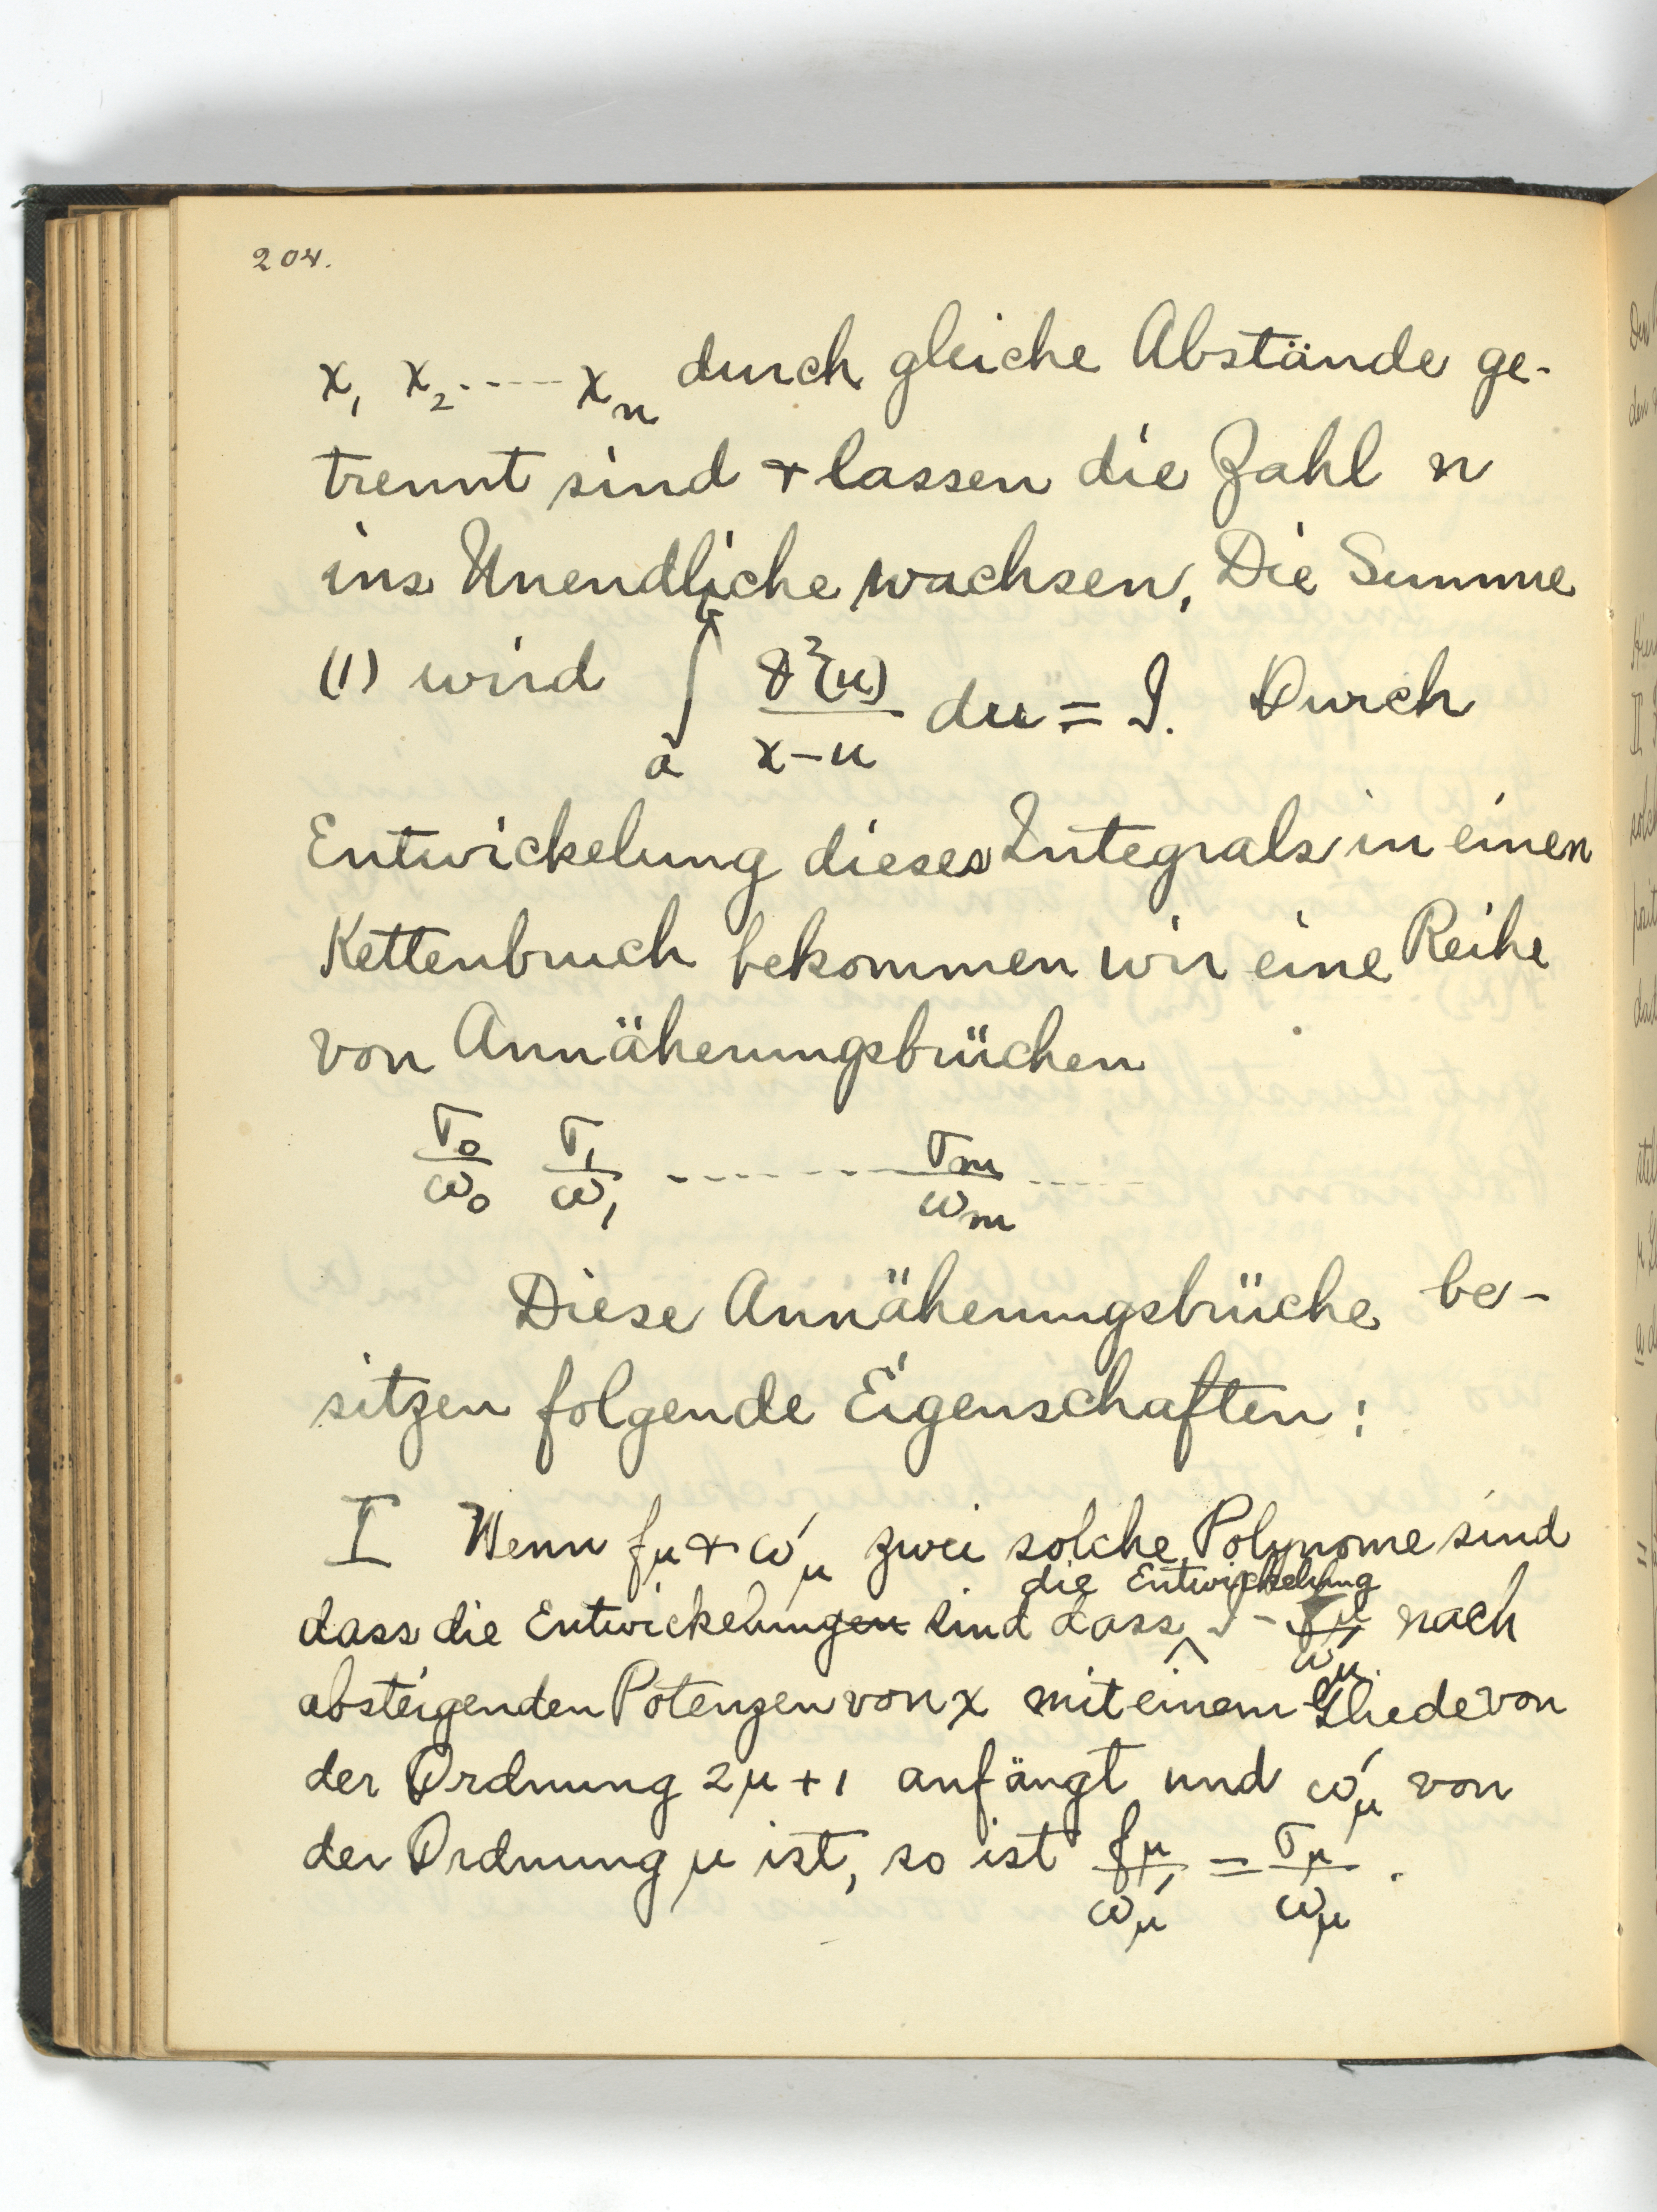 204.
x₁ x₂ ----- xₙ durch gleiche Abstände ge-
trennt sind + lassen die Zahl n
ins Unendliche wachsen. Die Summe
(1) wird ∫ₐᵇ ϑ²(u)/(x-u) du = J. Durch
Entwickelung dieses Integrals in einen
Kettenbruch bekommen wir eine Reihe
von Annäherungsbrüchen
σ₀/ω₀ σ₁/ω₁ --------- σₘ/ωₘ ------
Diese Annäherungsbrüche be-
sitzen folgende Eigenschaften:
I Wenn fμ + ω'μ zwei solche Polynome sind
die Entwickelung
dass die Entwickelungen sind dass ^ J - fμ/ω'μ nach
absteigenden Potenzen von x mit einem Gliede von
der Ordnung 2μ+1 anfängt und ω'μ von
der Ordnung μ ist, so ist fμ/ω'μ = σμ/ωμ.